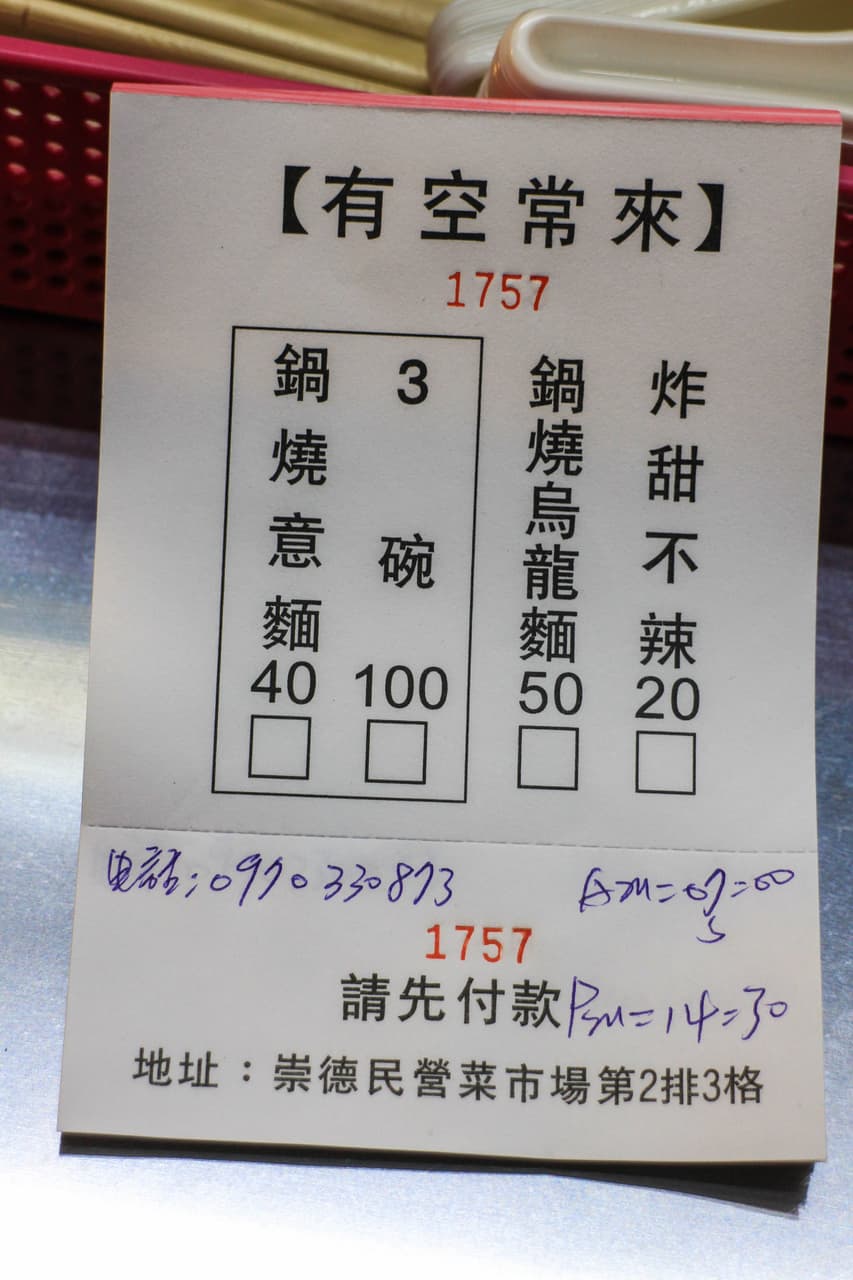 【有空常來】
1757
鍋燒意麵40
3碗100
鍋燒烏龍麵50
炸甜不辣20
电話:0970330873
AM=07=00
1757
請先付款
PM=14=30
地址：崇德民營菜市場第2排3格